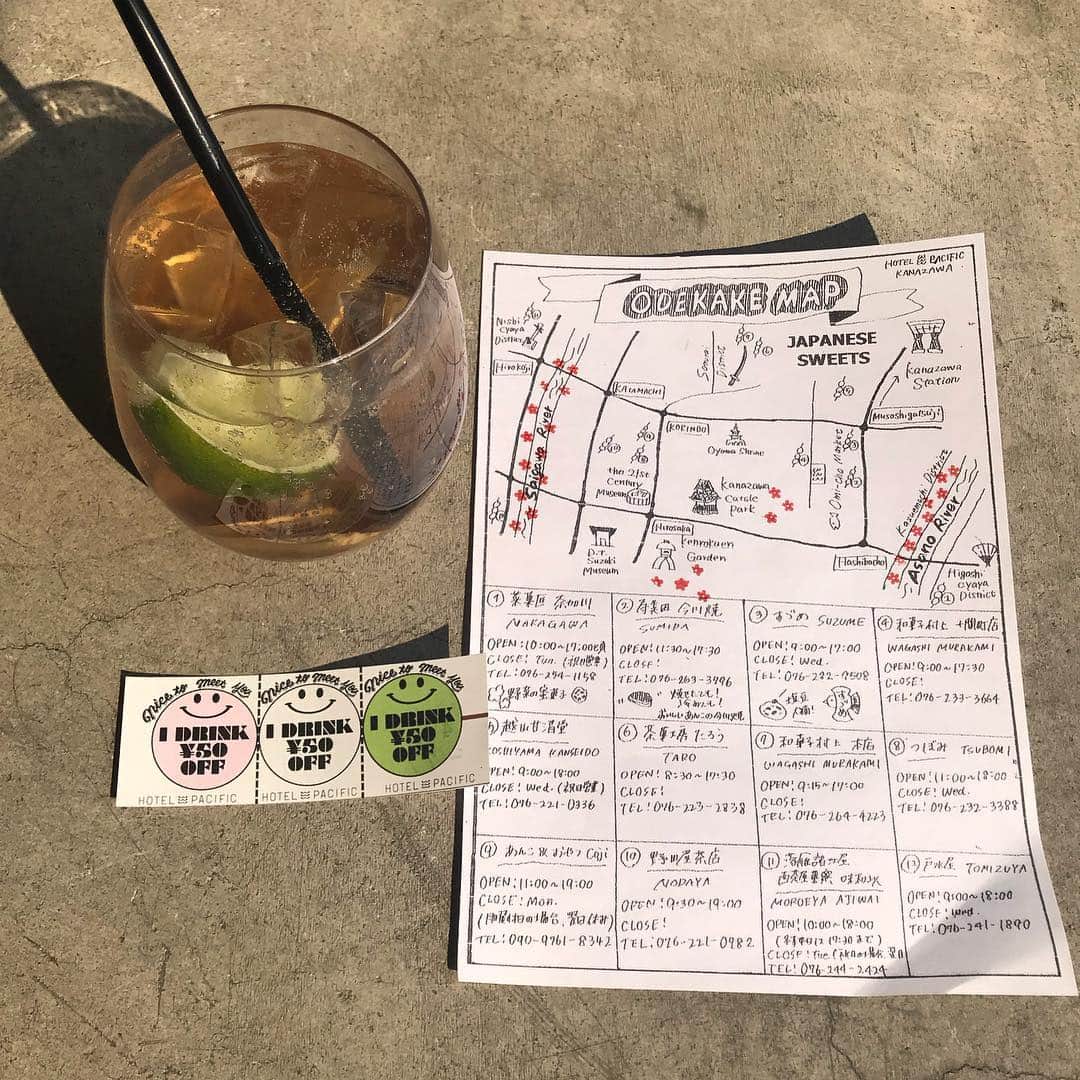 HOTEL PACIFIC
KANAZAWA
ODEKAKE MAP
JAPANESE
SWEETS
Nishi
Cyaya
District
Hirokoji
Saigawa River
KATAMACHI
KORINBO
Oyama Shrine
the 21st
Century
Museum
Kanazawa
Castle
park
Omi-cho Market
Musashigatsuji
Kanazawa
Station
Kazuemachi District
Asano River
Hashibacho
Higashi
Cyaya
District
Hirosaka
Kenrokuen
Garden
D.T.
Suzuki
Museum
① 菓菓匠 奈加川
NAKAGAWA
OPEN:10:00~17:00頃
CLOSE! Tue. (祝日営業)
TEL:076-254-1158
野菜の楽菓子
② 寿美田 今川焼
SUMIDA
OPEN:11:30~17:30
CLOSE!
TEL:076-263-3996
焼きたて!
おいしいあんこの今川焼
③ すゞめ SUZUME
OPEN:9:00~17:00
CLOSE! Wed.
TEL:076-232-9508
④ 和菓子村上 十間町店
WAGASHI MURAKAMI
OPEN:9:00~17:30
CLOSE!
TEL:076-233-3664
⑤ 越山甘清堂
KOSHIYAMA KANSEIDO
OPEN!9:00~18:00
CLOSE! Wed. (祝日営業)
TEL:076-221-0336
⑥ 茶菓工房たろう
TARO
OPEN!8:30~17:30
CLOSE!
TEL:076-223-2838
⑦ 和菓子村上 本店
WAGASHI MURAKAMI
OPEN!9:15~17:00
CLOSE!
TEL:076-264-4223
⑧ つぼみ TSUBOMI
OPEN!11:00~18:00
CLOSE! Wed.
TEL!076-232-3388
⑨ あんことおやつ Coji
OPEN:11:00~19:00
CLOSE! Mon.
TEL:090-9761-8342
⑩ 野田屋茶店
NODAYA
OPEN!9:30~19:00
CLOSE!
TEL:076-221-0982
⑪ 落雁諸江屋
西茶屋菓寮 味和以
MOROEYA AJIWAI
OPEN!10:00~18:00
CLOSE! Tue
TEL!076-244-2424
⑫ 戸水屋 TOMIZUYA
OPEN!9:00~18:00
CLOSE! Wed.
TEL:076-241-1890
Nice to Meet You
1 DRINK
¥50
OFF
HOTEL PACIFIC
Nice to Meet You
1 DRINK
¥50
OFF
HOTEL PACIFIC
Nice to Meet You
1 DRINK
¥50
OFF
HOTEL PACIFIC